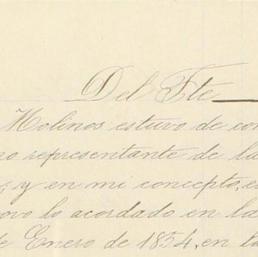 Del Fte
Molinos estuvo de con
no representante de la
y en mi concepto, es
ovo lo acordado en la
e Enero de 1854, en ta